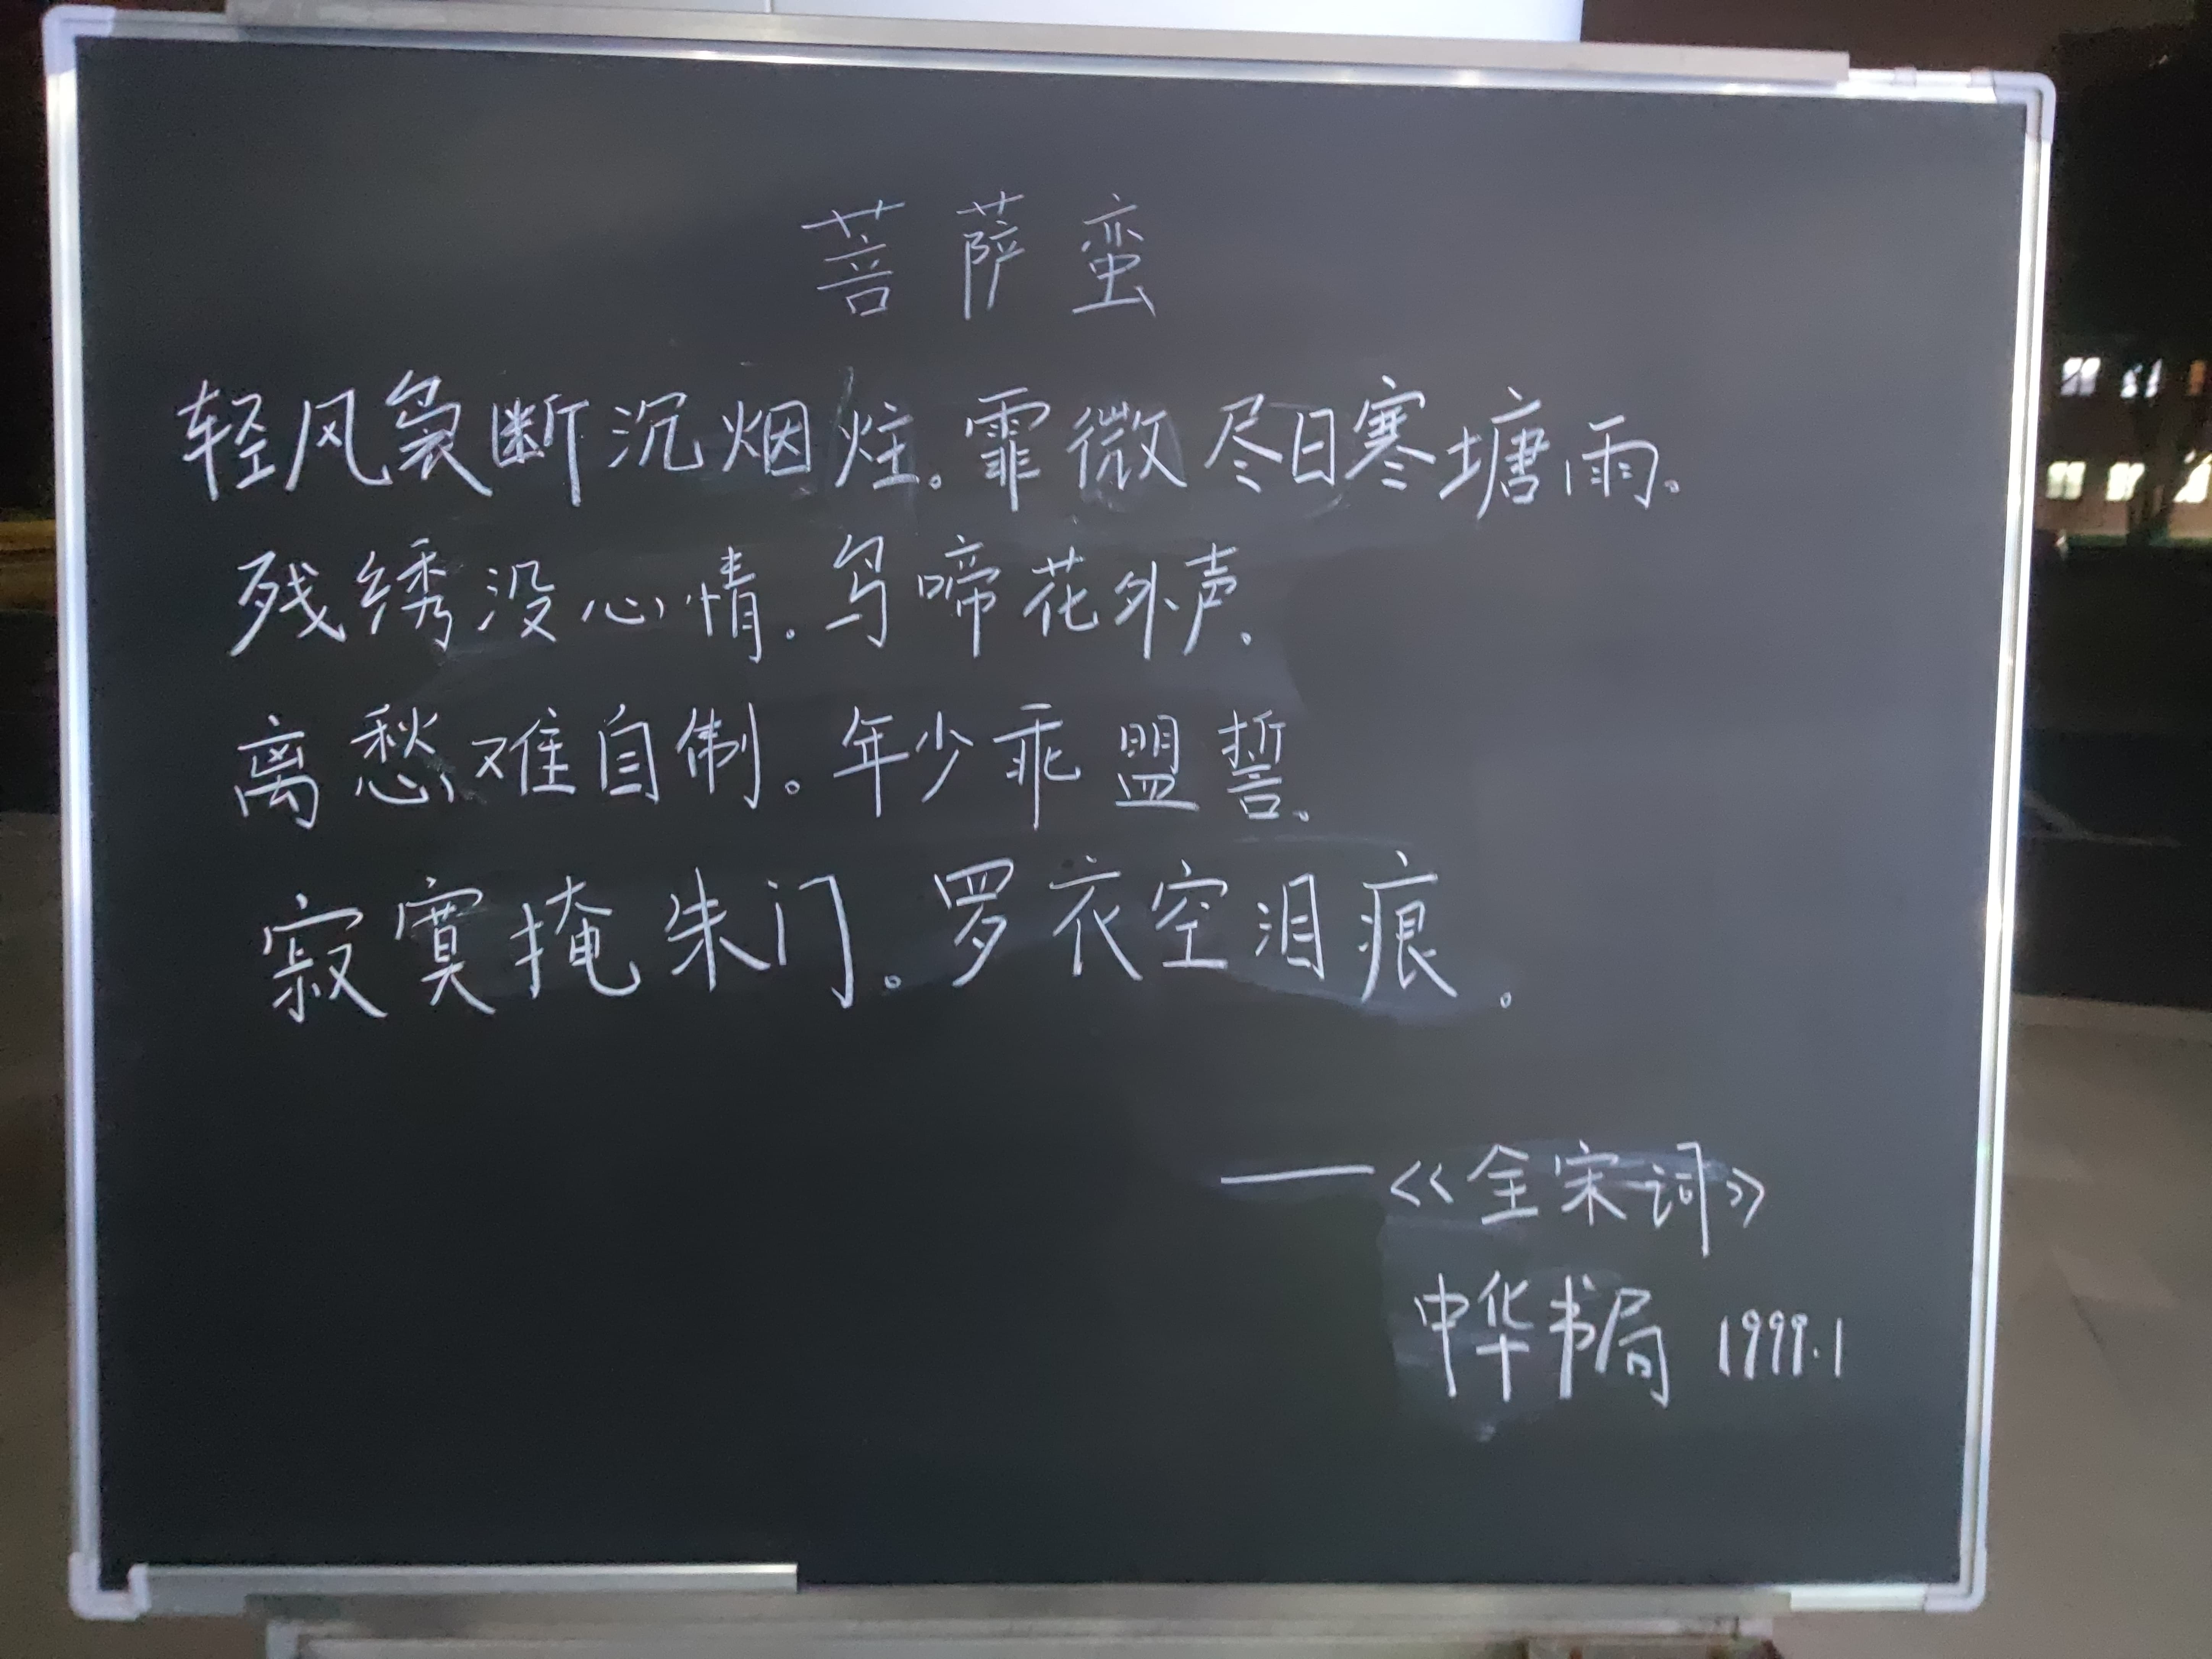 菩萨蛮
轻风袅断沉烟炷。霏微尽日寒塘雨。
残绣没心情。鸟啼花外声。
离愁难自制。年少乖盟誓。
寂寞掩朱门。罗衣空泪痕。
——《全宋词》
中华书局 1999.1